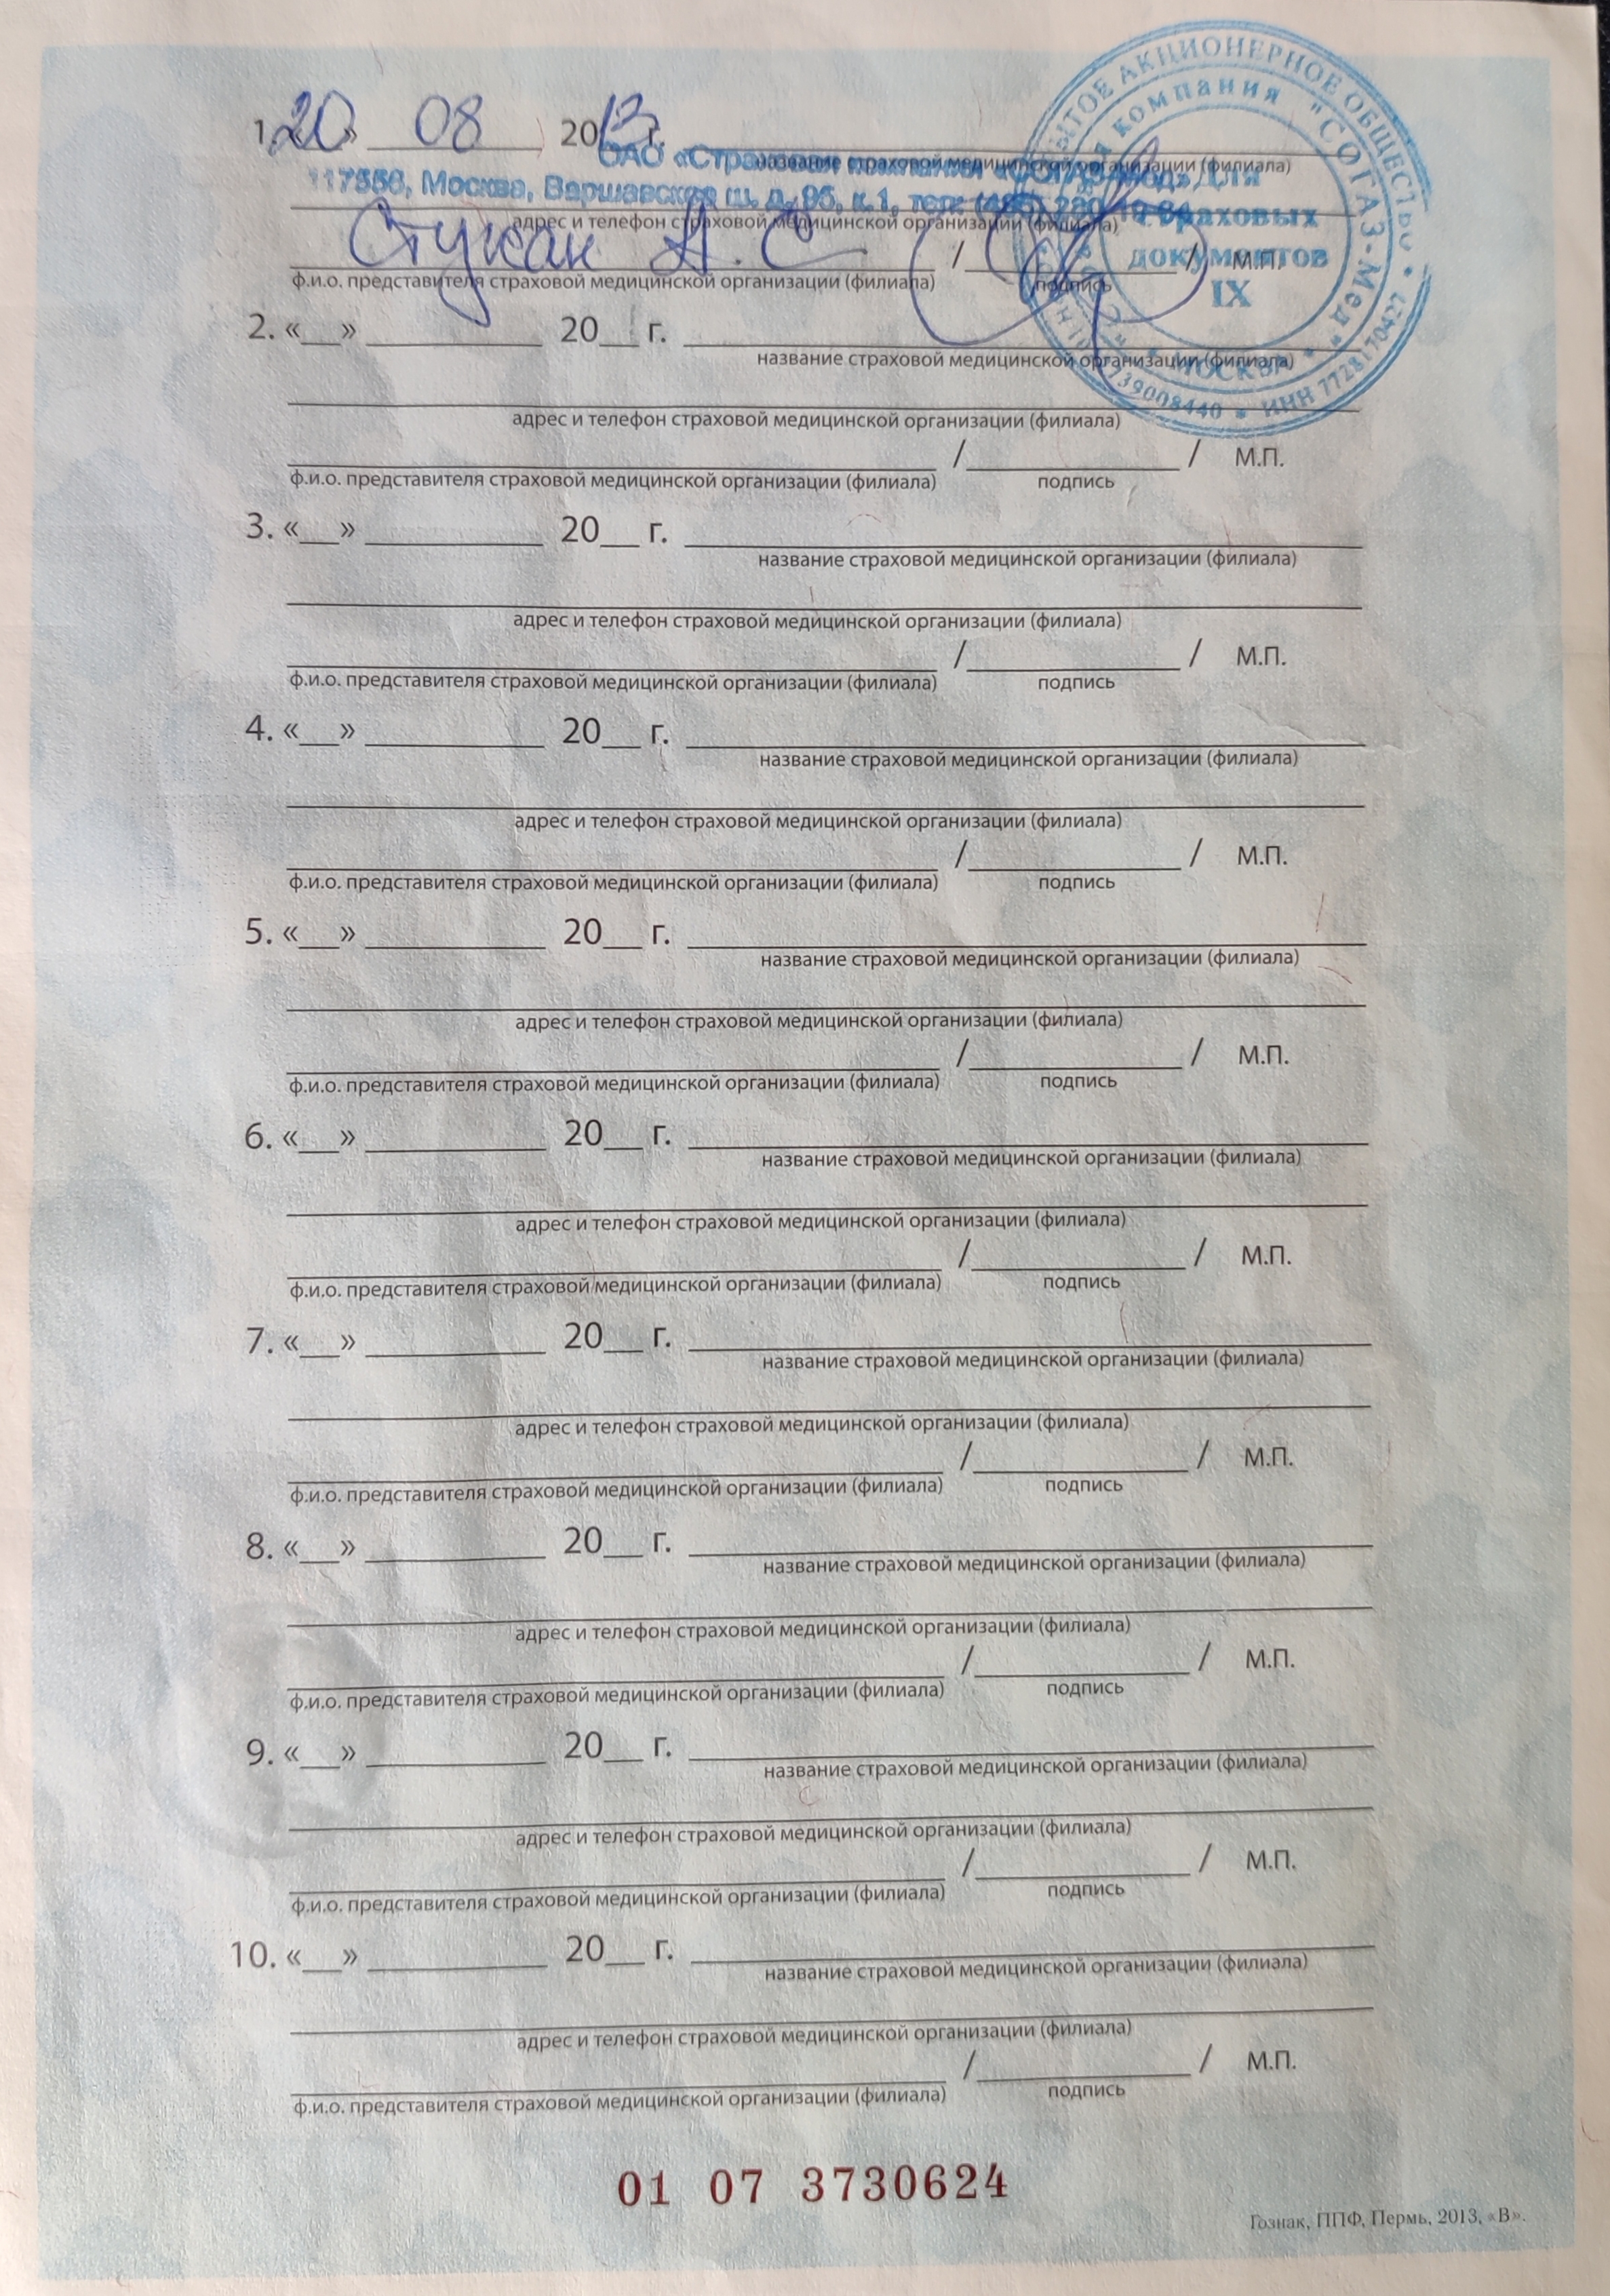 1. «20» 08 2013 г.
название страховой медицинской организации (филиала)
ОАО «Страховая компания «СОГАЗ-Мед»
117556, Москва, Варшавское ш. д. 95, к.1, тел:
адрес и телефон страховой медицинской организации (филиала)
Стукан А. С / / М.П.
ф.и.о. представителя страховой медицинской организации (филиала) подпись
ОТКРЫТОЕ АКЦИОНЕРНОЕ ОБЩЕСТВО
компания "СОГАЗ-Мед"
Для
страховых
документов
IX
МОСКВА
ИНН 7728170427
2. «__» ________ 20__ г. ________
название страховой медицинской организации (филиала)
адрес и телефон страховой медицинской организации (филиала)
/ / М.П.
ф.и.о. представителя страховой медицинской организации (филиала) подпись
3. «__» ________ 20__ г. ________
название страховой медицинской организации (филиала)
адрес и телефон страховой медицинской организации (филиала)
/ / М.П.
ф.и.о. представителя страховой медицинской организации (филиала) подпись
4. «__» ________ 20__ г. ________
название страховой медицинской организации (филиала)
адрес и телефон страховой медицинской организации (филиала)
/ / М.П.
ф.и.о. представителя страховой медицинской организации (филиала) подпись
5. «__» ________ 20__ г. ________
название страховой медицинской организации (филиала)
адрес и телефон страховой медицинской организации (филиала)
/ / М.П.
ф.и.о. представителя страховой медицинской организации (филиала) подпись
6. «__» ________ 20__ г. ________
название страховой медицинской организации (филиала)
адрес и телефон страховой медицинской организации (филиала)
/ / М.П.
ф.и.о. представителя страховой медицинской организации (филиала) подпись
7. «__» ________ 20__ г. ________
название страховой медицинской организации (филиала)
адрес и телефон страховой медицинской организации (филиала)
/ / М.П.
ф.и.о. представителя страховой медицинской организации (филиала) подпись
8. «__» ________ 20__ г. ________
название страховой медицинской организации (филиала)
адрес и телефон страховой медицинской организации (филиала)
/ / М.П.
ф.и.о. представителя страховой медицинской организации (филиала) подпись
9. «__» ________ 20__ г. ________
название страховой медицинской организации (филиала)
адрес и телефон страховой медицинской организации (филиала)
/ / М.П.
ф.и.о. представителя страховой медицинской организации (филиала) подпись
10. «__» ________ 20__ г. ________
название страховой медицинской организации (филиала)
адрес и телефон страховой медицинской организации (филиала)
/ / М.П.
ф.и.о. представителя страховой медицинской организации (филиала) подпись
01 07 3730624
Гознак, ППФ, Пермь, 2013, «В».